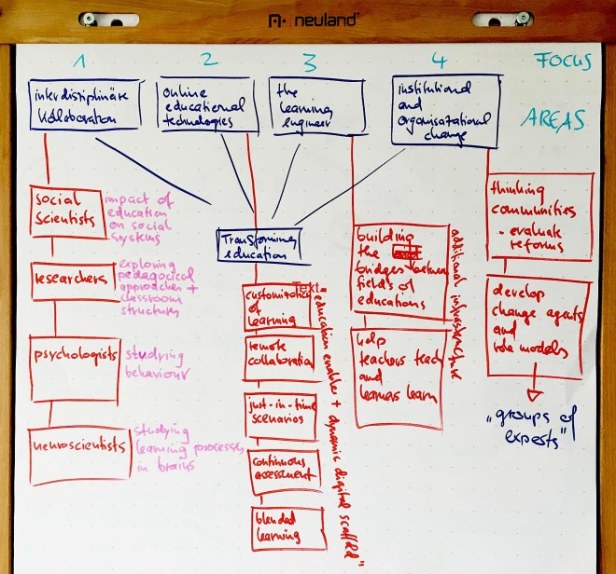 neuland
1
2
3
4
FOCUS
AREAS
interdisziplinäre
Kollaboration
online
educational
technologies
the
learning
engineer
institutional
and
organisational
change
Transforming
education
social
scientists
impact of
education
on social
systems
researchers
exploring
pedagogical
approaches +
classroom
structures
psychologists
studying
behaviour
neuroscientists
studying
learning processes
in brains
Text
customization
of
learning
remote
collaboration
just-in-time
scenarios
continuous
assessment
blended
learning
"education enabler + dynamic digital scaffold"
building
the
bridges between
fields of
educations
help
teachers teach
and
learners learn
additional infrastructure
thinking
communities
- evaluate
reforms
develop
change agents
and
role models
"groups of
experts"